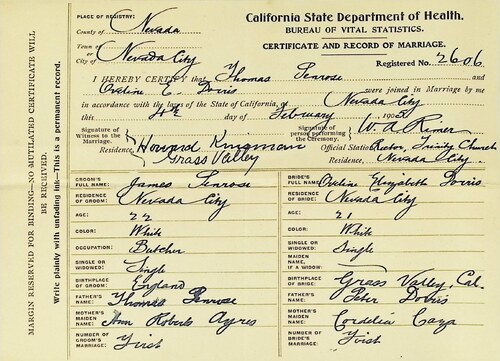 PLACE OF REGISTRY:
County of Nevada
Town or
City of Nevada City
California State Department of Health.
BUREAU OF VITAL STATISTICS.
CERTIFICATE AND RECORD OF MARRIAGE.
Registered No. 2606
I HEREBY CERTIFY that Thomas Penrose
and Evaline E. Davis were joined in Marriage by me
in accordance with the laws of the State of California, at Nevada City
this 4th day of February 190
Signature of
Witness to the
Marriage. Howard Kingman
Residence, Grass Valley
Signature of
person performing
the Ceremony. W. A. Rimer
Official Station Rector, Trinity Church
Residence, Nevada City.
MARGIN RESERVED FOR BINDING—NO MUTILATED CERTIFICATE WILL
BE RECEIVED.
Write plainly with unfading ink—This is a permanent record.
GROOM'S
FULL NAME: James Penrose
RESIDENCE
OF GROOM: Nevada City
AGE: 22
COLOR: White
OCCUPATION: Butcher
SINGLE OR
WIDOWED: Single
BIRTHPLACE
OF GROOM: England
FATHER'S
NAME: Thomas Penrose
MOTHER'S
MAIDEN
NAME: Ann Roberts Ayres
NUMBER OF
GROOM'S
MARRIAGE: First
BRIDE'S
FULL NAME: Evaline Elizabeth Davis
RESIDENCE OF
BRIDE: Nevada City
AGE: 21
COLOR: White
SINGLE OR
WIDOWED: Single
MAIDEN
NAME,
IF A WIDOW:
BIRTHPLACE
OF BRIDE: Grass Valley, Cal.
FATHER'S
NAME: Peter Davis
MOTHER'S
MAIDEN
NAME: Cordelia
NUMBER OF
BRIDE'S
MARRIAGE: First